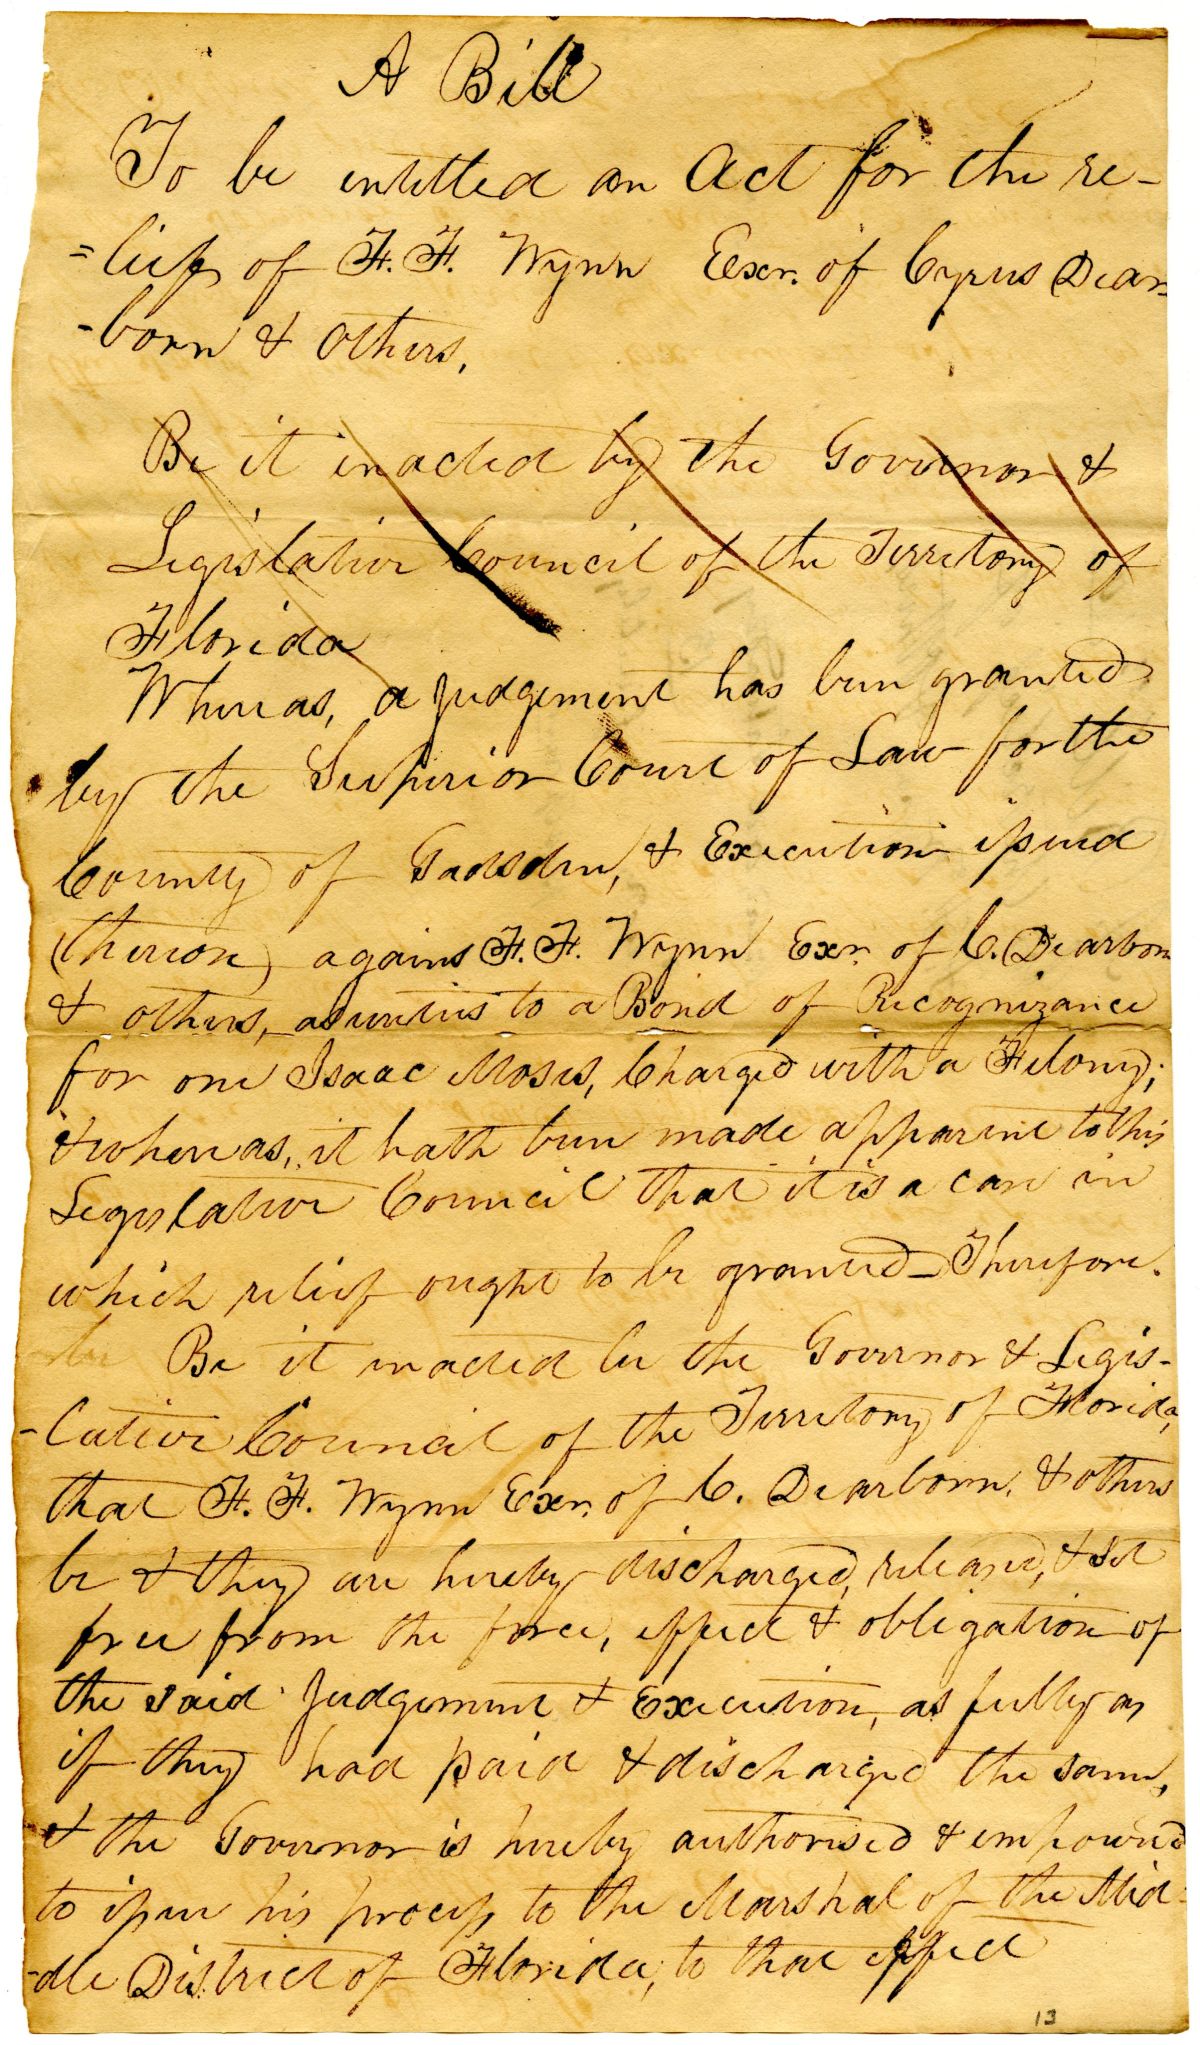 A Bill
To be entitled an Act for the re-
=lief of F. F. Wynn Exr. of Cyrus Dear-
-born & others,
Be it enacted by the Governor &
Legislative Council of the Territory of
Florida
Whereas, a judgement has been granted
by the Superior Court of Law for the
County of Gadsden, & Execution issued
thereon agains F. F. Wynn Exr. of C. Dearborn
& others, as to a Bond of Recognizance
for one Isaac Moses, Charged with a Felony;
& whereas, it hath been made apparent to this
Legislative Council that it is a case in
which relief ought to be granted - Therefore.
Be it enacted by the Governor & Legis-
-lative Council of the Territory of Florida,
that F. F. Wynn Exr. of C. Dearborn, & others
be & they are hereby discharged, released, & set
free from the force, effect & obligation of
the said Judgement & Execution, as fully as
if they had paid & discharged the same,
& the Governor is hereby authorised & empowered
to issue his process to the Marshal of the Mid-
-dle District of Florida, to that effect
13